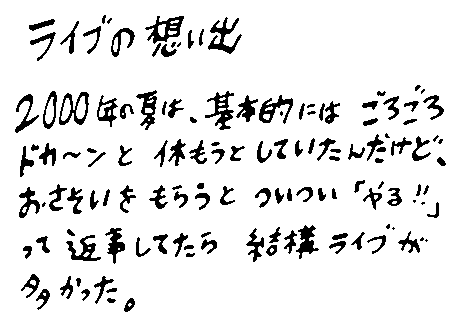 ライブの想い出
2000年の夏は、基本的には ごろごろ
ドカ〜ンと 休もうとしていたんだけど、
おさそいを もらうと ついつい「やる!!」
って 返事してたら 結構 ライブが
多かった。